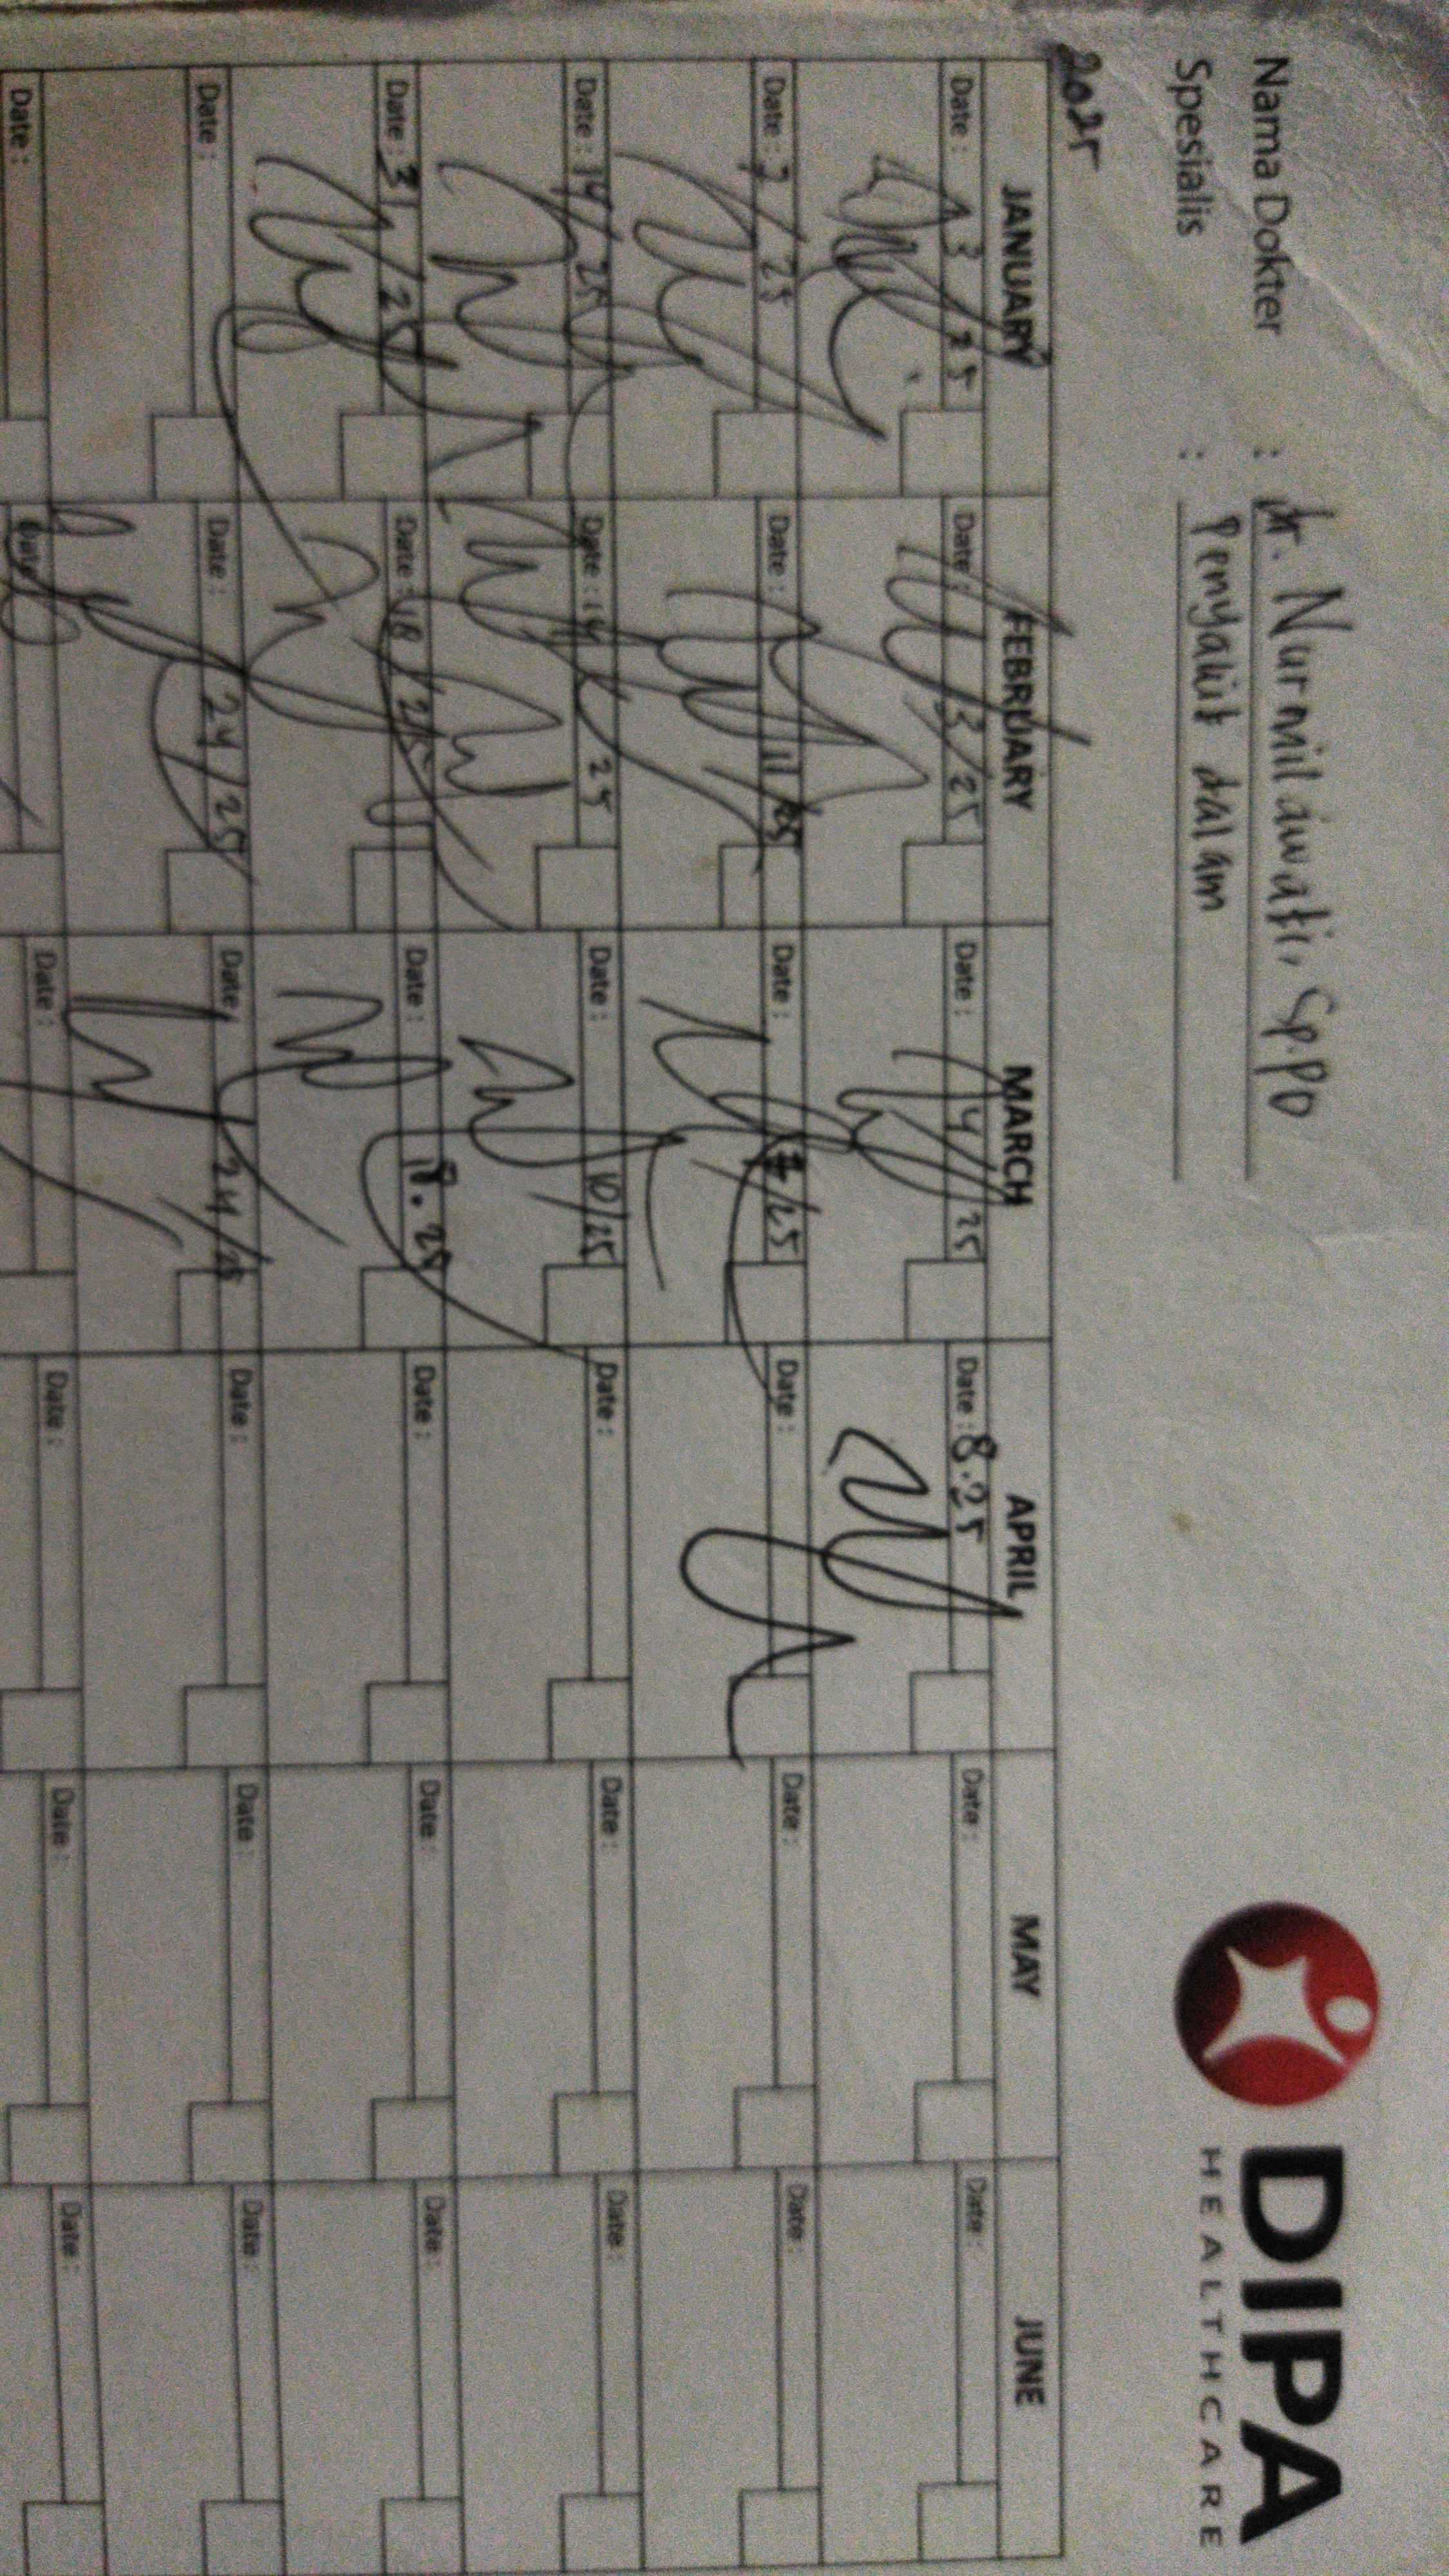 Nama Dokter : dr. Nurmilawati, Sp.PD
Spesialis : Penyakit dalam
DIPA
HEALTHCARE
2025
JANUARY FEBRUARY MARCH APRIL MAY JUNE
Date : 3 25 Date : 3/25 Date : 4/25 Date : 8.25 Date : Date :
Date : 7/25 Date : 11/25 Date : /25 Date : Date : Date :
Date : 14/25 Date : 14 25 Date : 10/25 Date : Date : Date :
Date : 31/25 Date : 18/25 Date : 18.25 Date : Date : Date :
Date : Date : 24/25 Date : 24/25 Date : Date : Date :
Date : Date Date : Date : Date : Date :